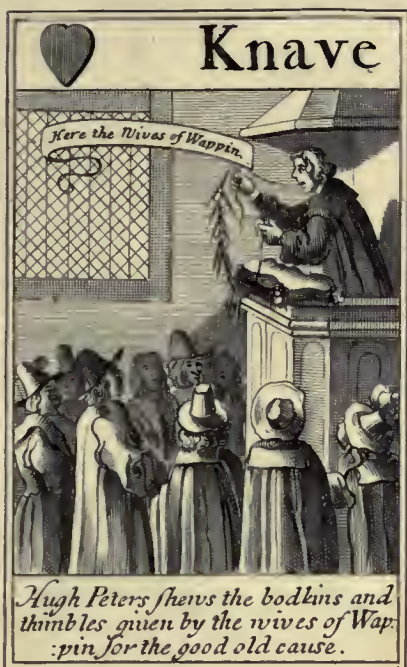 Knave
Here the Wives of Wappin.
Hugh Peters shews the bodkins and
thimbles giuen by the wives of Wap:
:pin for the good old cause.